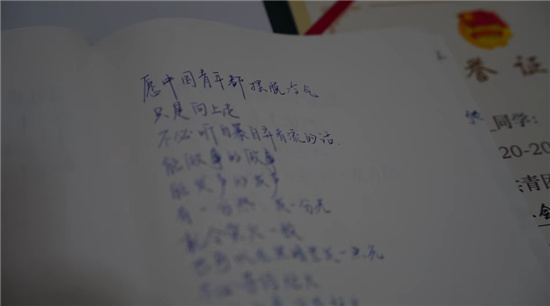 愿中国青年都摆脱冷气
只是向上走
不必听自暴自弃者流的话.
能做事的做事
能发声的发声
有一分热 发一分光
就令萤火一般
也可以在黑暗里发一点光
不必等待炬火
誉证
同学:
20-20
青团